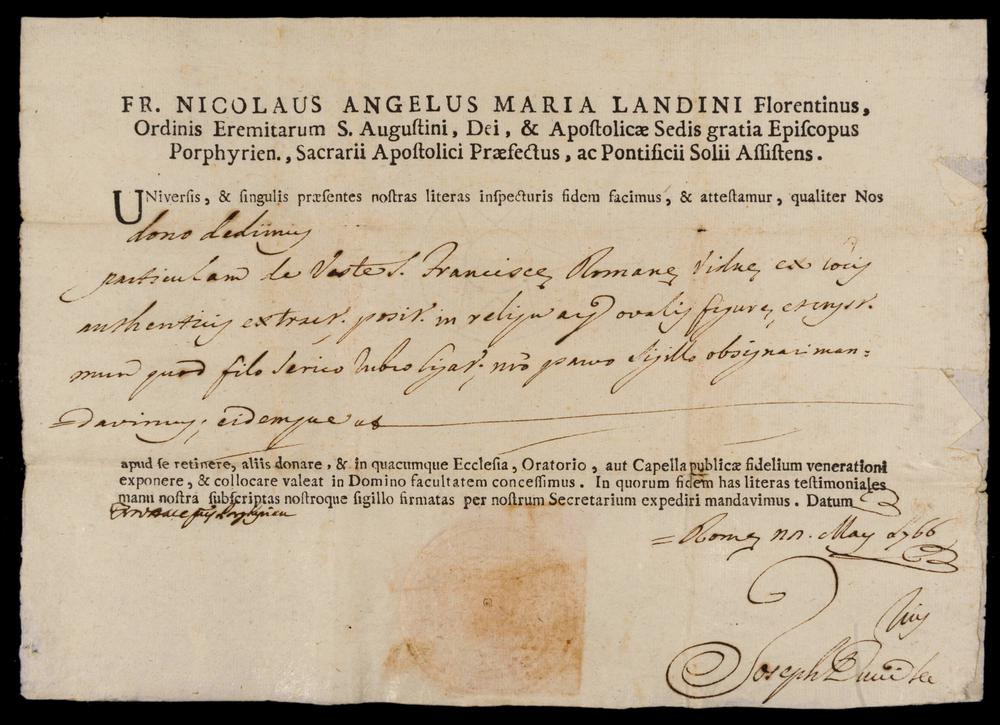 FR. NICOLAUS ANGELUS MARIA LANDINI Florentinus,
Ordinis Eremitarum S. Auguſtini, Dei, & Apoſtolicæ Sedis gratia Epiſcopus
Porphyrien., Sacrarii Apoſtolici Præfectus, ac Pontificii Solii Aſſiſtens.
UNiverſis, & ſingulis præſentes noſtras literas inſpecturis fidem facimus, & atteſtamur, qualiter Nos
dono dedimus
particulam de Veste S. Francisce Romane Vidue ex locis
authenticis extract. posit. in reliquiario ovalis figure,
quod filo serico rubro ligat. nro parvo sigillo obsignari man=
=davimus; eidemque ut
apud ſe retinere, aliis donare, & in quacumque Eccleſia, Oratorio, aut Capella publicæ fidelium venerationi
exponere, & collocare valeat in Domino facultatem conceſſimus. In quorum fidem has literas teſtimoniales
manu noſtra ſubſcriptas noſtroque ſigillo firmatas per noſtrum Secretarium expediri mandavimus. Datum
Porphyrien
=Rome May 1766
Joseph